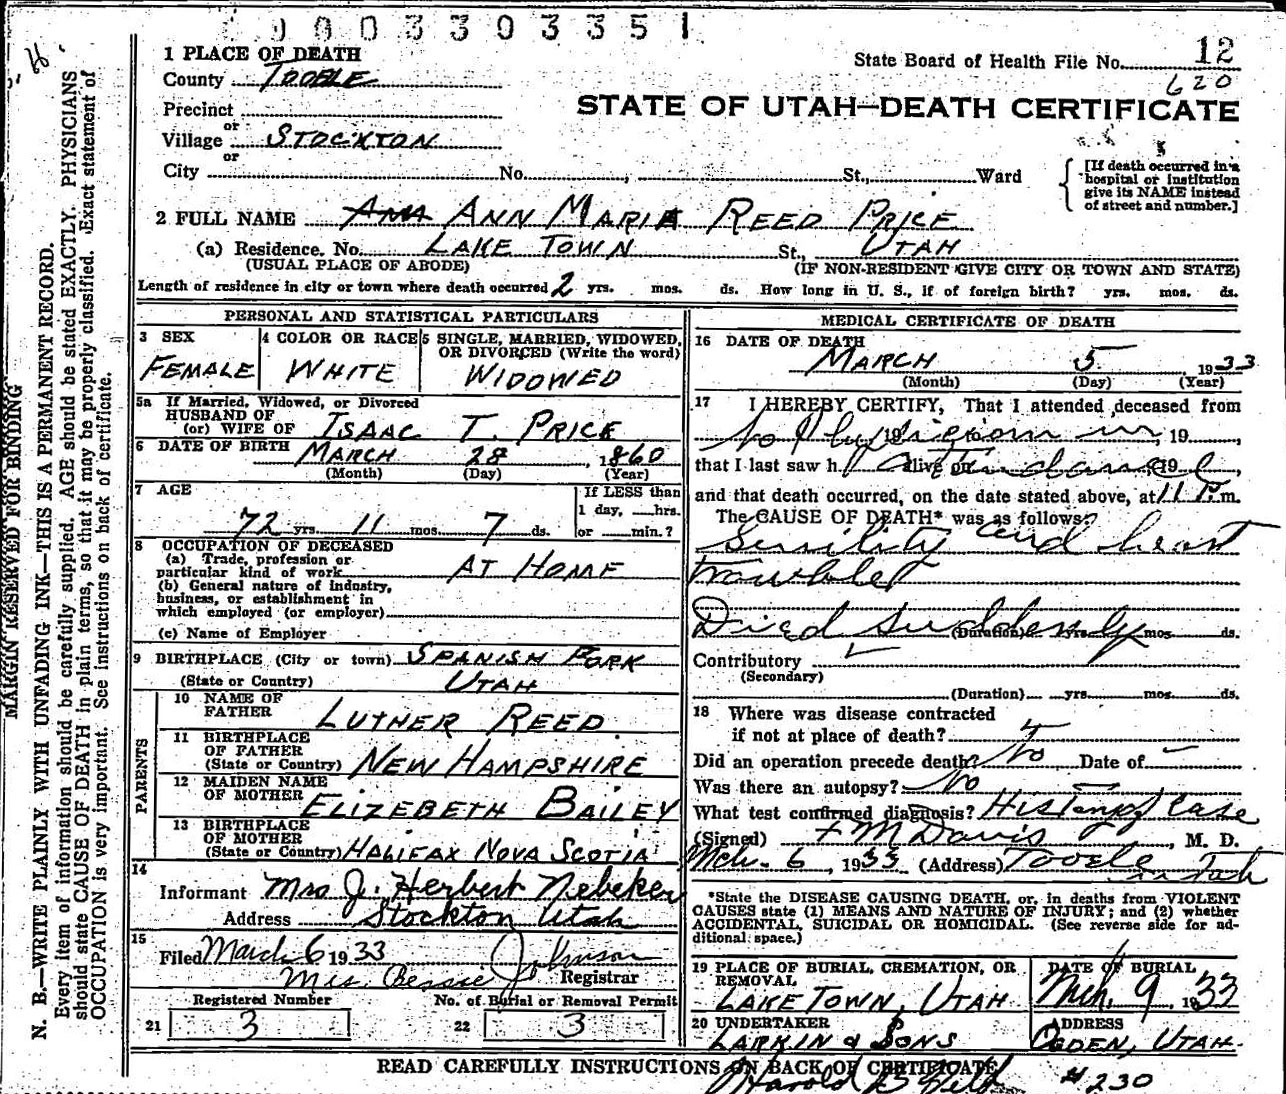 0003303351
1 PLACE OF DEATH
County Tooele
State Board of Health File No. 12
620
Precinct
or
Village Stockton
STATE OF UTAH—DEATH CERTIFICATE
or
City No. , St., Ward
[If death occurred in a hospital or institution give its NAME instead of street and number.]
2 FULL NAME Ann Maria Reed Price
(a) Residence. No. Lake Town St., Utah
(USUAL PLACE OF ABODE) (IF NON-RESIDENT GIVE CITY OR TOWN AND STATE)
Length of residence in city or town where death occurred 2 yrs. mos. ds. How long in U. S., if of foreign birth? yrs. mos. ds.
PERSONAL AND STATISTICAL PARTICULARS
3 SEX
Female
4 COLOR OR RACE
White
5 SINGLE, MARRIED, WIDOWED, OR DIVORCED (Write the word)
Widowed
5a If Married, Widowed, or Divorced
HUSBAND OF
(or) WIFE OF Isaac T. Price
6 DATE OF BIRTH
March 28, 1860
(Month) (Day) (Year)
7 AGE
72 yrs. 11 mos. 7 ds.
If LESS than
1 day, hrs.
or min.?
8 OCCUPATION OF DECEASED
(a) Trade, profession or
particular kind of work At Home
(b) General nature of industry,
business, or establishment in
which employed (or employer)
(c) Name of Employer
9 BIRTHPLACE (City or town) Spanish Fork
(State or Country) Utah
PARENTS
10 NAME OF
FATHER Luther Reed
11 BIRTHPLACE
OF FATHER
(State or Country) New Hampshire
12 MAIDEN NAME
OF MOTHER Elizebeth Bailey
13 BIRTHPLACE
OF MOTHER
(State or Country) Halifax Nova Scotia
14
Informant Mrs J. Herbert Nebeker
Address Stockton Utah
15
Filed March 6 1933
Mrs. Bessie Johnson Registrar
Registered Number
21 3
No. of Burial or Removal Permit
22 3
MEDICAL CERTIFICATE OF DEATH
16 DATE OF DEATH
March 5, 1933
(Month) (Day) (Year)
17 I HEREBY CERTIFY, That I attended deceased from
No Physician in , 19 ,
that I last saw h alive on attendance, 19 ,
and that death occurred, on the date stated above, at 11 P. m.
The CAUSE OF DEATH* was as follows:
Senility and heart
trouble
Died suddenly
(Duration) yrs. mos. ds.
Contributory
(Secondary)
(Duration) yrs. mos. ds.
18 Where was disease contracted
if not at place of death?
Did an operation precede death? No Date of
Was there an autopsy? No
What test confirmed diagnosis? History of case
(Signed) F M Davis, M. D.
Mch. 6, 1933 (Address) Tooele
Utah
*State the DISEASE CAUSING DEATH, or, in deaths from VIOLENT
CAUSES state (1) MEANS AND NATURE OF INJURY; and (2) whether
ACCIDENTAL, SUICIDAL OR HOMICIDAL. (See reverse side for additional space.)
19 PLACE OF BURIAL, CREMATION, OR
REMOVAL
Lake Town, Utah
DATE OF BURIAL
Mch. 9, 1933
20 UNDERTAKER
Larkin & Sons
ADDRESS
Ogden, Utah.
READ CAREFULLY INSTRUCTIONS ON BACK OF CERTIFICATE
Harold # 230
MARGIN RESERVED FOR BINDING
N. B.—WRITE PLAINLY WITH UNFADING INK—THIS IS A PERMANENT RECORD.
Every item of information should be carefully supplied. AGE should be stated EXACTLY. PHYSICIANS
should state CAUSE OF DEATH in plain terms, so that it may be properly classified. Exact statement of
OCCUPATION is very important. See instructions on back of certificate.